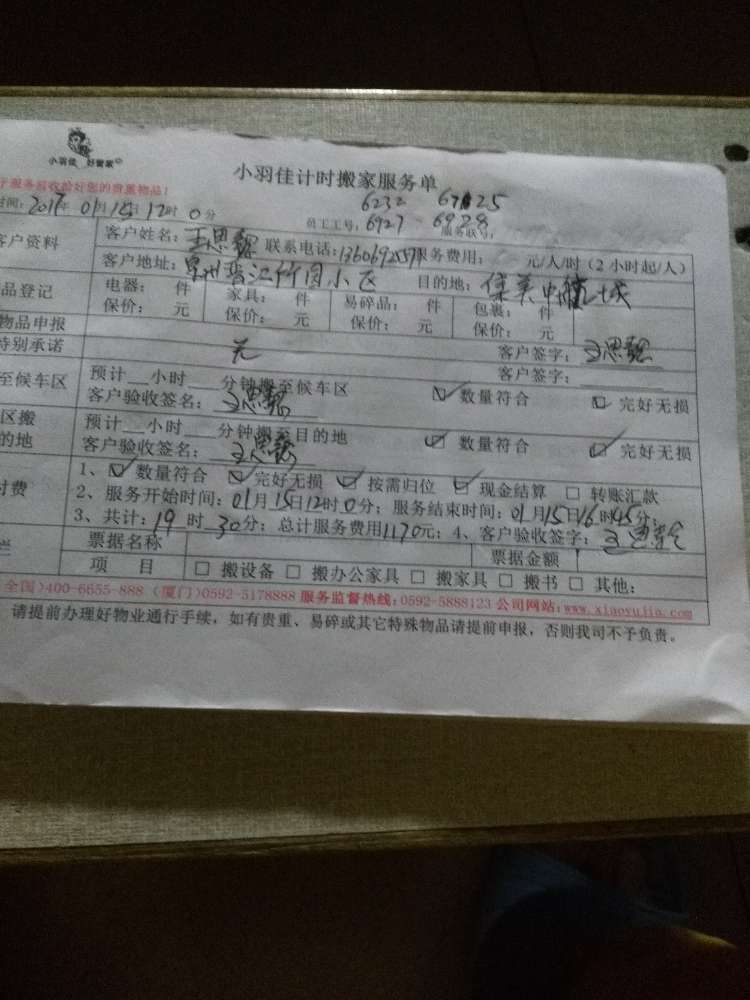 小羽佳 好管家
小羽佳计时搬家服务单
于服务前收拾好您的贵重物品！
6232
时间：2017年01月15日12时0分
员工工号：6927 6928 服务联号：
客户资料 客户姓名：王思 联系电话： 服务费用： 元/人/时（2小时起/人）
客户地址：泉州晋江竹园小区 目的地：集美 城
品登记 电器： 件 家具： 件 易碎品： 件 包裹： 件
保价： 元 保价： 元 保价： 元 保价： 元
物品申报 客户签字：王思
特别承诺 无 客户签字：
至候车区 预计__小时___分钟搬至候车区 ☑ 数量符合 ☑ 完好无损
客户验收签名：王思
区搬 预计__小时___分钟搬至目的地 ☑ 数量符合 ☑ 完好无损
的地 客户验收签名：王思
1、☑ 数量符合 ☑ 完好无损 ☑ 按需归位 ☑ 现金结算 ☐ 转账汇款
付费 2、服务开始时间：01月15日12时0分；服务结束时间：01月15日16时45分；
3、共计：19时30分；总计服务费用1170元；4、客户验收签字：王思
栏 票据名称 票据金额
项 目 ☐ 搬设备 ☐ 搬办公家具 ☐ 搬家具 ☐ 搬书 ☐ 其他：
全国)400-6655-888 (厦门)0592-5178888 服务监督热线：0592-5888123 公司网站：www.xiaoyujia.com
请提前办理好物业通行手续，如有贵重、易碎或其它特殊物品请提前申报，否则我司不予负责。